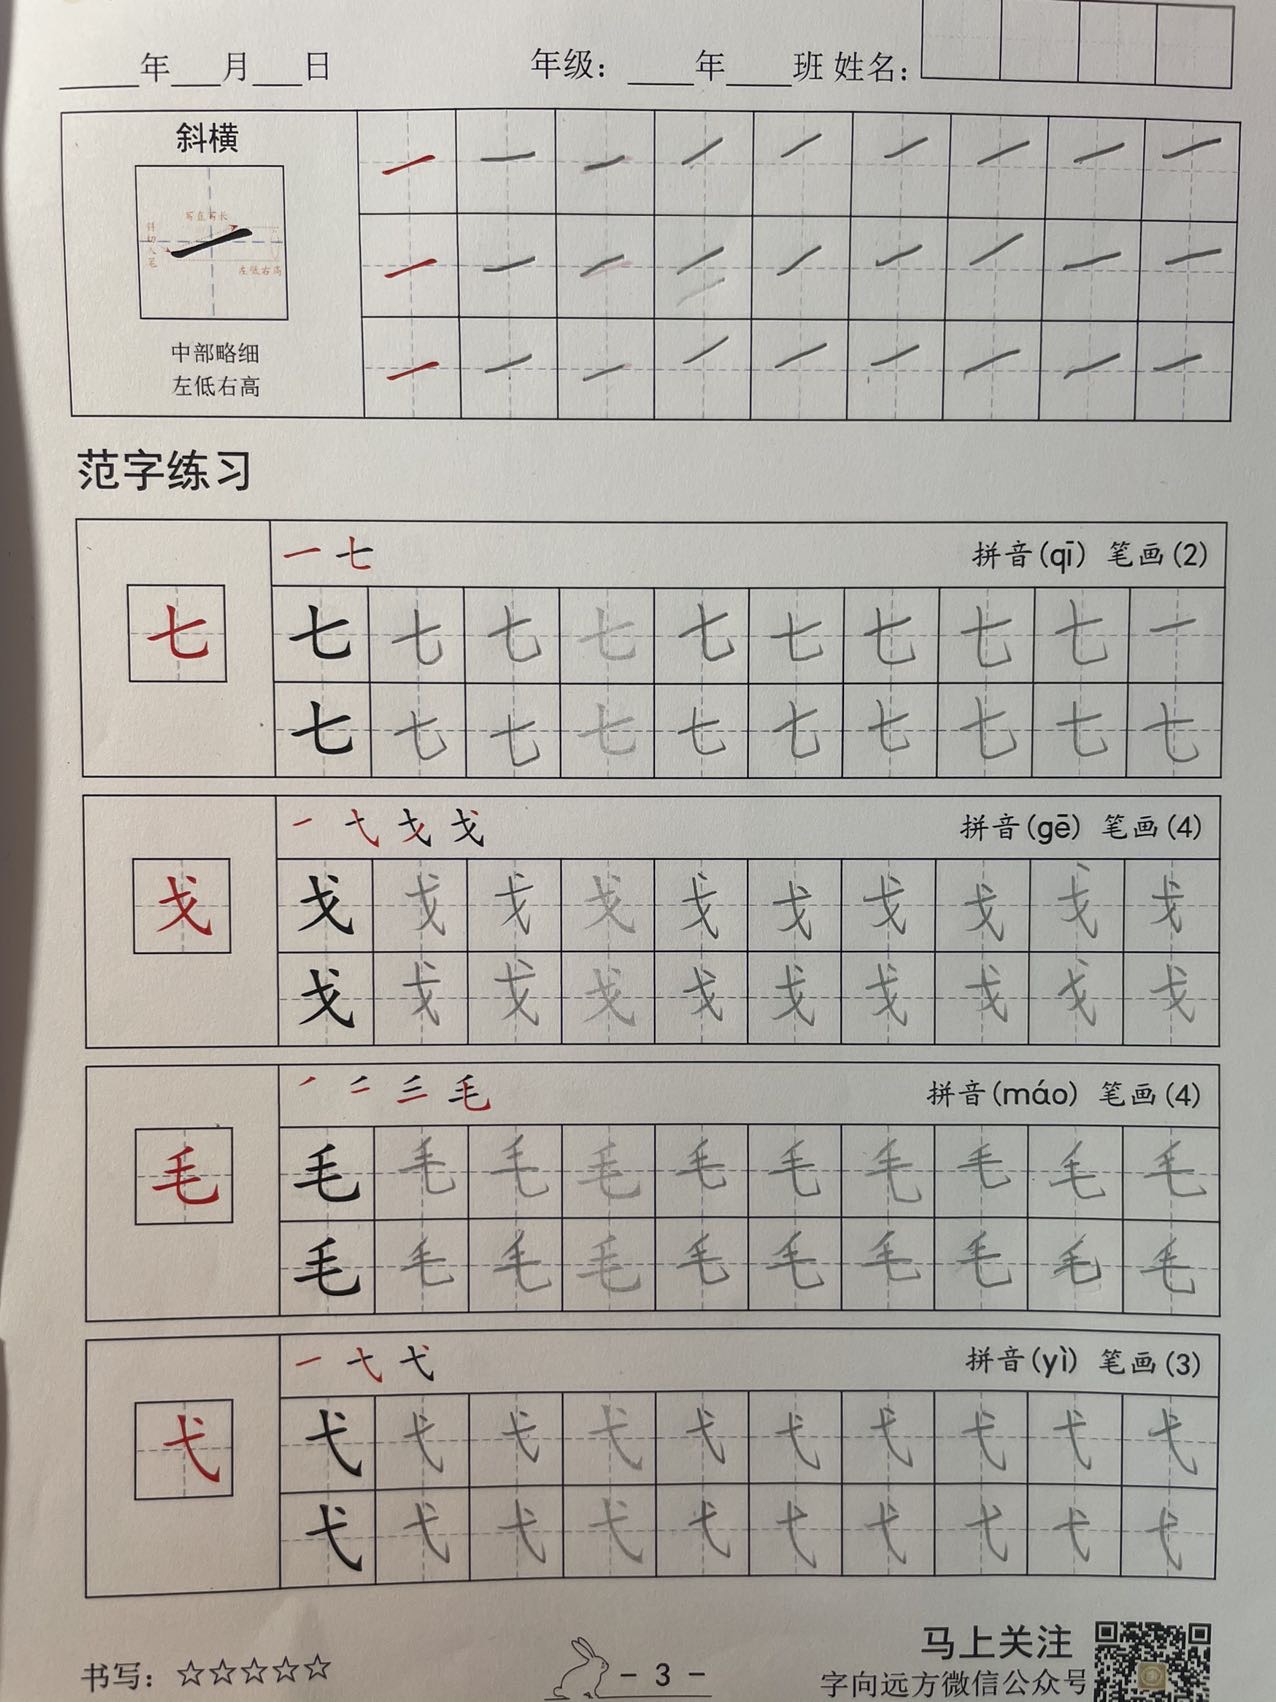 ____年___月___日 年级：____年____班 姓名：
斜横
写直写长
斜切入笔
左低右高
中部略细
左低右高
范字练习
一 七 拼音(qī) 笔画(2)
七 七 七 七 七 七 七 七 七 七 一
七 七 七 七 七 七 七 七 七 七
戈 拼音(gē) 笔画(4)
戈 戈 戈 戈 戈 戈 戈 戈 戈 戈 戈
戈 戈 戈 戈 戈 戈 戈 戈 戈 戈
一 二 三 毛 拼音(máo) 笔画(4)
毛 毛 毛 毛 毛 毛 毛 毛 毛 毛 毛
毛 毛 毛 毛 毛 毛 毛 毛 毛 毛
一 弋 拼音(yì) 笔画(3)
弋 弋 弋 弋 弋 弋 弋 弋 弋 弋 弋
弋 弋 弋 弋 弋 弋 弋 弋 弋 弋
书写：☆☆☆☆☆ - 3 - 马上关注
字向远方微信公众号